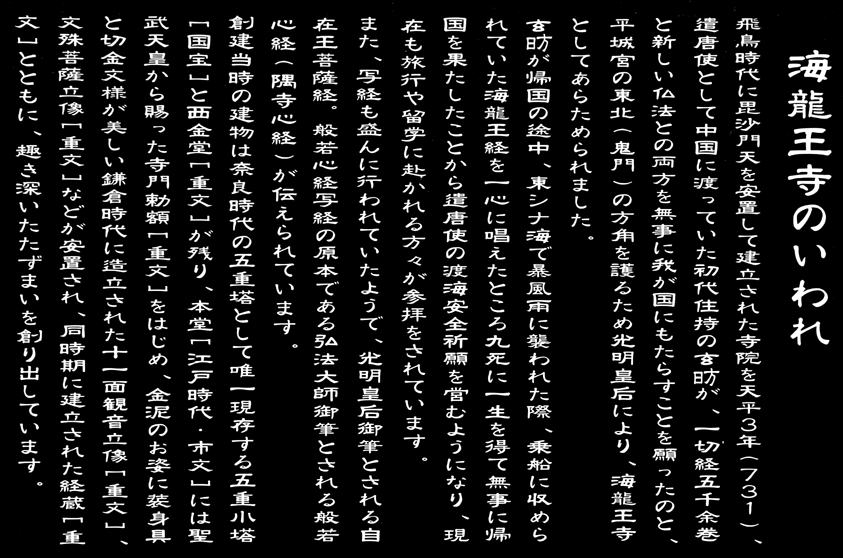 海龍王寺のいわれ
飛鳥時代に毘沙門天を安置して建立された寺院を天平3年(731)、
遣唐使として中国に渡っていた初代住持の玄昉が、一切経五千余巻
と新しい仏法との両方を無事に我が国にもたらすことを願ったのと、
平城宮の東北(鬼門)の方角を護るため光明皇后により、海龍王寺
としてあらためられました。
玄昉が帰国の途中、東シナ海で暴風雨に襲われた際、乗船に収めら
れていた海龍王経を一心に唱えたところ九死に一生を得て無事に帰
国を果たしたことから遣唐使の渡海安全祈願を営むようになり、現
在も旅行や留学に赴かれる方々が参拝をされています。
また、写経も盛んに行われていたようで、光明皇后御筆とされる自
在王菩薩経。般若心経写経の原本である弘法大師御筆とされる般若
心経(隅寺心経)が伝えられています。
創建当時の建物は奈良時代の五重塔として唯一現存する五重小塔
[国宝]と西金堂[重文]が残り、本堂[江戸時代・市文]には聖
武天皇から賜った寺門勅額[重文]をはじめ、金泥のお姿に装身具
と切金文様が美しい鎌倉時代に造立された十一面観音立像[重文]、
文殊菩薩立像[重文]などが安置され、同時期に建立された経蔵[重
文]とともに、趣き深いたたずまいを創り出しています。